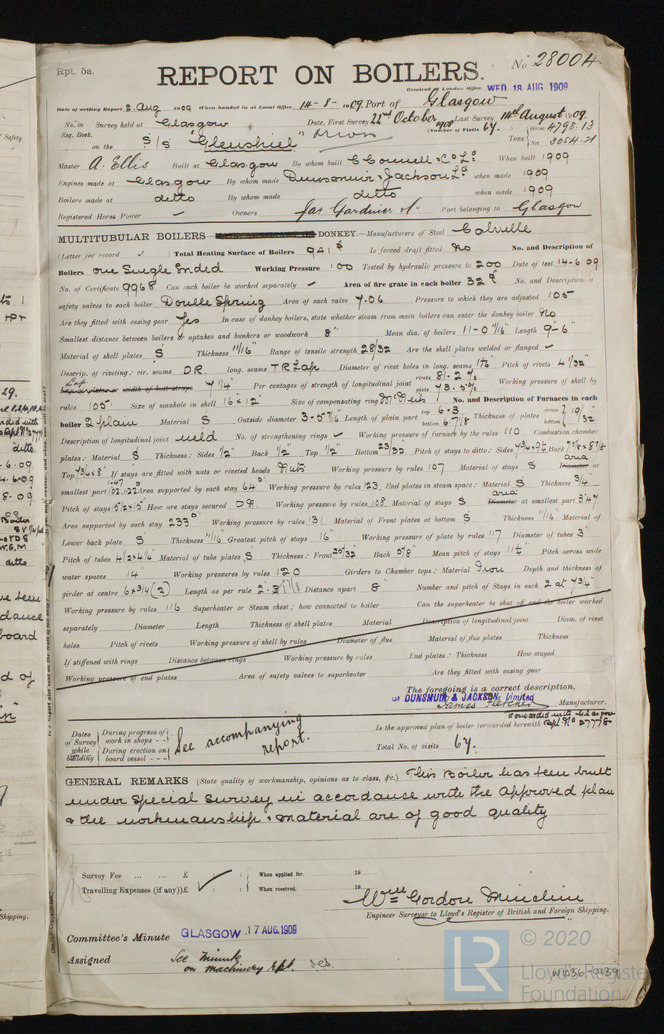 Rpt. 5a.
REPORT ON BOILERS.
No 28004
Received at London Office WED 18 AUG 1909
Date of writing Report 2. Aug 1909 When handed in at Local Office 14-8-1909. Port of Glasgow
No. in Survey held at Glasgow Date, First Survey 22nd October 1908 Last Survey 14th August 1909.
Reg. Book. (Number of Visits 67.) Gross 4798.13
on the S/S "Glenshiel" Tons Net 3054.21
Master A. Ellis Built at Glasgow By whom built C Connell & Co Ld When built 1909
Engines made at Glasgow By whom made Dunsmuir & Jackson Ld when made 1909
Boilers made at ditto By whom made ditto when made 1909
Registered Horse Power Owners Jas Gardiner & Co Port belonging to Glasgow
MULTITUBULAR BOILERS DONKEY.—Manufacturers of Steel Colville
(Letter for record ✓) Total Heating Surface of Boilers 941 Is forced draft fitted No No. and Description of
Boilers one Single Ended Working Pressure 100 Tested by hydraulic pressure to 200 Date of test 14-6-09
No. of Certificate 9968 Can each boiler be worked separately ✓ Area of fire grate in each boiler 32 No. and Description of
safety valves to each boiler Double Spring Area of each valve 7.06 Pressure to which they are adjusted 105
Are they fitted with easing gear Yes In case of donkey boilers, state whether steam from main boilers can enter the donkey boiler No
Smallest distance between boilers or uptakes and bunkers or woodwork 8" Mean dia. of boilers 11-0 Length 9-6"
Material of shell plates S Thickness 11/16" Range of tensile strength 28/32 Are the shell plates welded or flanged
Descrip. of riveting: cir. seams D.R. long. seams T R Lap Diameter of rivet holes in long. seams Pitch of rivets 4 1/32"
Lap 7 1/4" Per centages of strength of longitudinal joint rivets plate 73.5% Working pressure of shell by
rules 105 Size of manhole in shell 16 x 12" Size of compensating ring McNeils No. and Description of Furnaces in each
boiler 2 plain Material S Outside diameter Length of plain part top 6-3 bottom 6-7 1/8 Thickness of plates crown bottom 19/32
Description of longitudinal joint weld No. of strengthening rings Working pressure of furnace by the rules 110 Combustion chamber
plates: Material S Thickness: Sides 1/2" Back 1/2 Top 1/2 Bottom 23/32 Pitch of stays to ditto: Sides Back
Top If stays are fitted with nuts or riveted heads Nuts Working pressure by rules 107 Material of stays S area at
smallest part Area supported by each stay 64 Working pressure by rules 123 End plates in steam space: Material S Thickness 3/4
Pitch of stays How are stays secured DN Working pressure by rules 108 Material of stays S area at smallest part 3.47
Area supported by each stay 233 Working pressure by rules Material of Front plates at bottom S Thickness 11/16" Material of
Lower back plate S Thickness 11/16 Greatest pitch of stays 16" Working pressure of plate by rules 117 Diameter of tubes 3"
Pitch of tubes 4 1/2 x 4 1/4 Material of tube plates S Thickness: Front 25/32 Back 5/8 Mean pitch of stays Pitch across wide
water spaces 14" Working pressures by rules 120 Girders to Chamber tops: Material Iron Depth and thickness of
girder at centre 6 x 3/4 (2) Length as per rule Distance apart 8" Number and pitch of Stays in each 2 at 7 3/4"
Working pressure by rules 116 Superheater or Steam chest; how connected to boiler Can the superheater be shut off and the boiler worked
separately Diameter Length Thickness of shell plates Material Description of longitudinal joint Diam. of rivet
holes Pitch of rivets Working pressure of shell by rules Diameter of flue Material of flue plates Thickness
If stiffened with rings Distance between rings Working pressure by rules End plates: Thickness How stayed
Working pressure of end plates Area of safety valves to superheater Are they fitted with easing gear
The foregoing is a correct description,
DUNSMUIR & JACKSON, Limited
James Fletcher Manufacturer.
Dates of Survey while building During progress of work in shops - - During erection on board vessel - - - See accompanying report.
Is the approved plan of boiler forwarded herewith Forwarded with Rpt No 27778
Total No. of visits 67.
GENERAL REMARKS (State quality of workmanship, opinions as to class, &c.) This Boiler has been built
under Special Survey in accordance with the Approved plan
& the workmanship & material are of good quality
Survey Fee ... ... £ : : When applied for. 19
Travelling Expenses (if any) £ : : When received. 19
Wm Gordon Minchin
Engineer Surveyor to Lloyd's Register of British and Foreign Shipping.
Committee's Minute GLASGOW 17 AUG. 1909
Assigned See Minute
on Machinery Rpt.
© 2020
Lloyd's Register
Foundation
W1036-0139